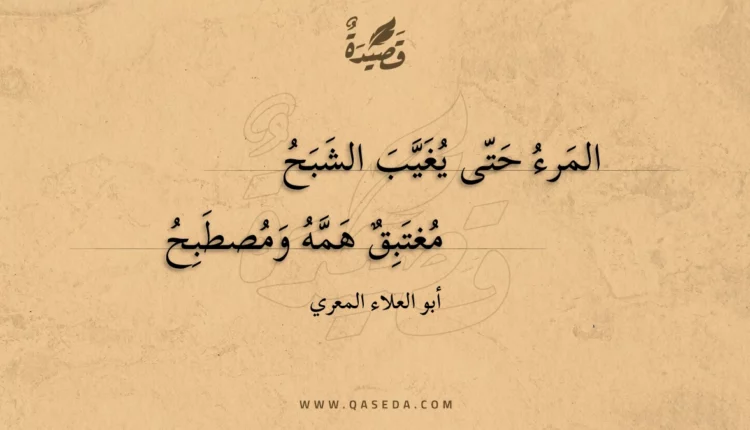 قَصِيدَةٌ
المَرءُ حَتّى يُغَيَّبَ الشَبَحُ
مُغتَبِقٌ هَمَّهُ وَمُصطَبِحُ
أبو العلاء المعري
WWW.QASEDA.COM